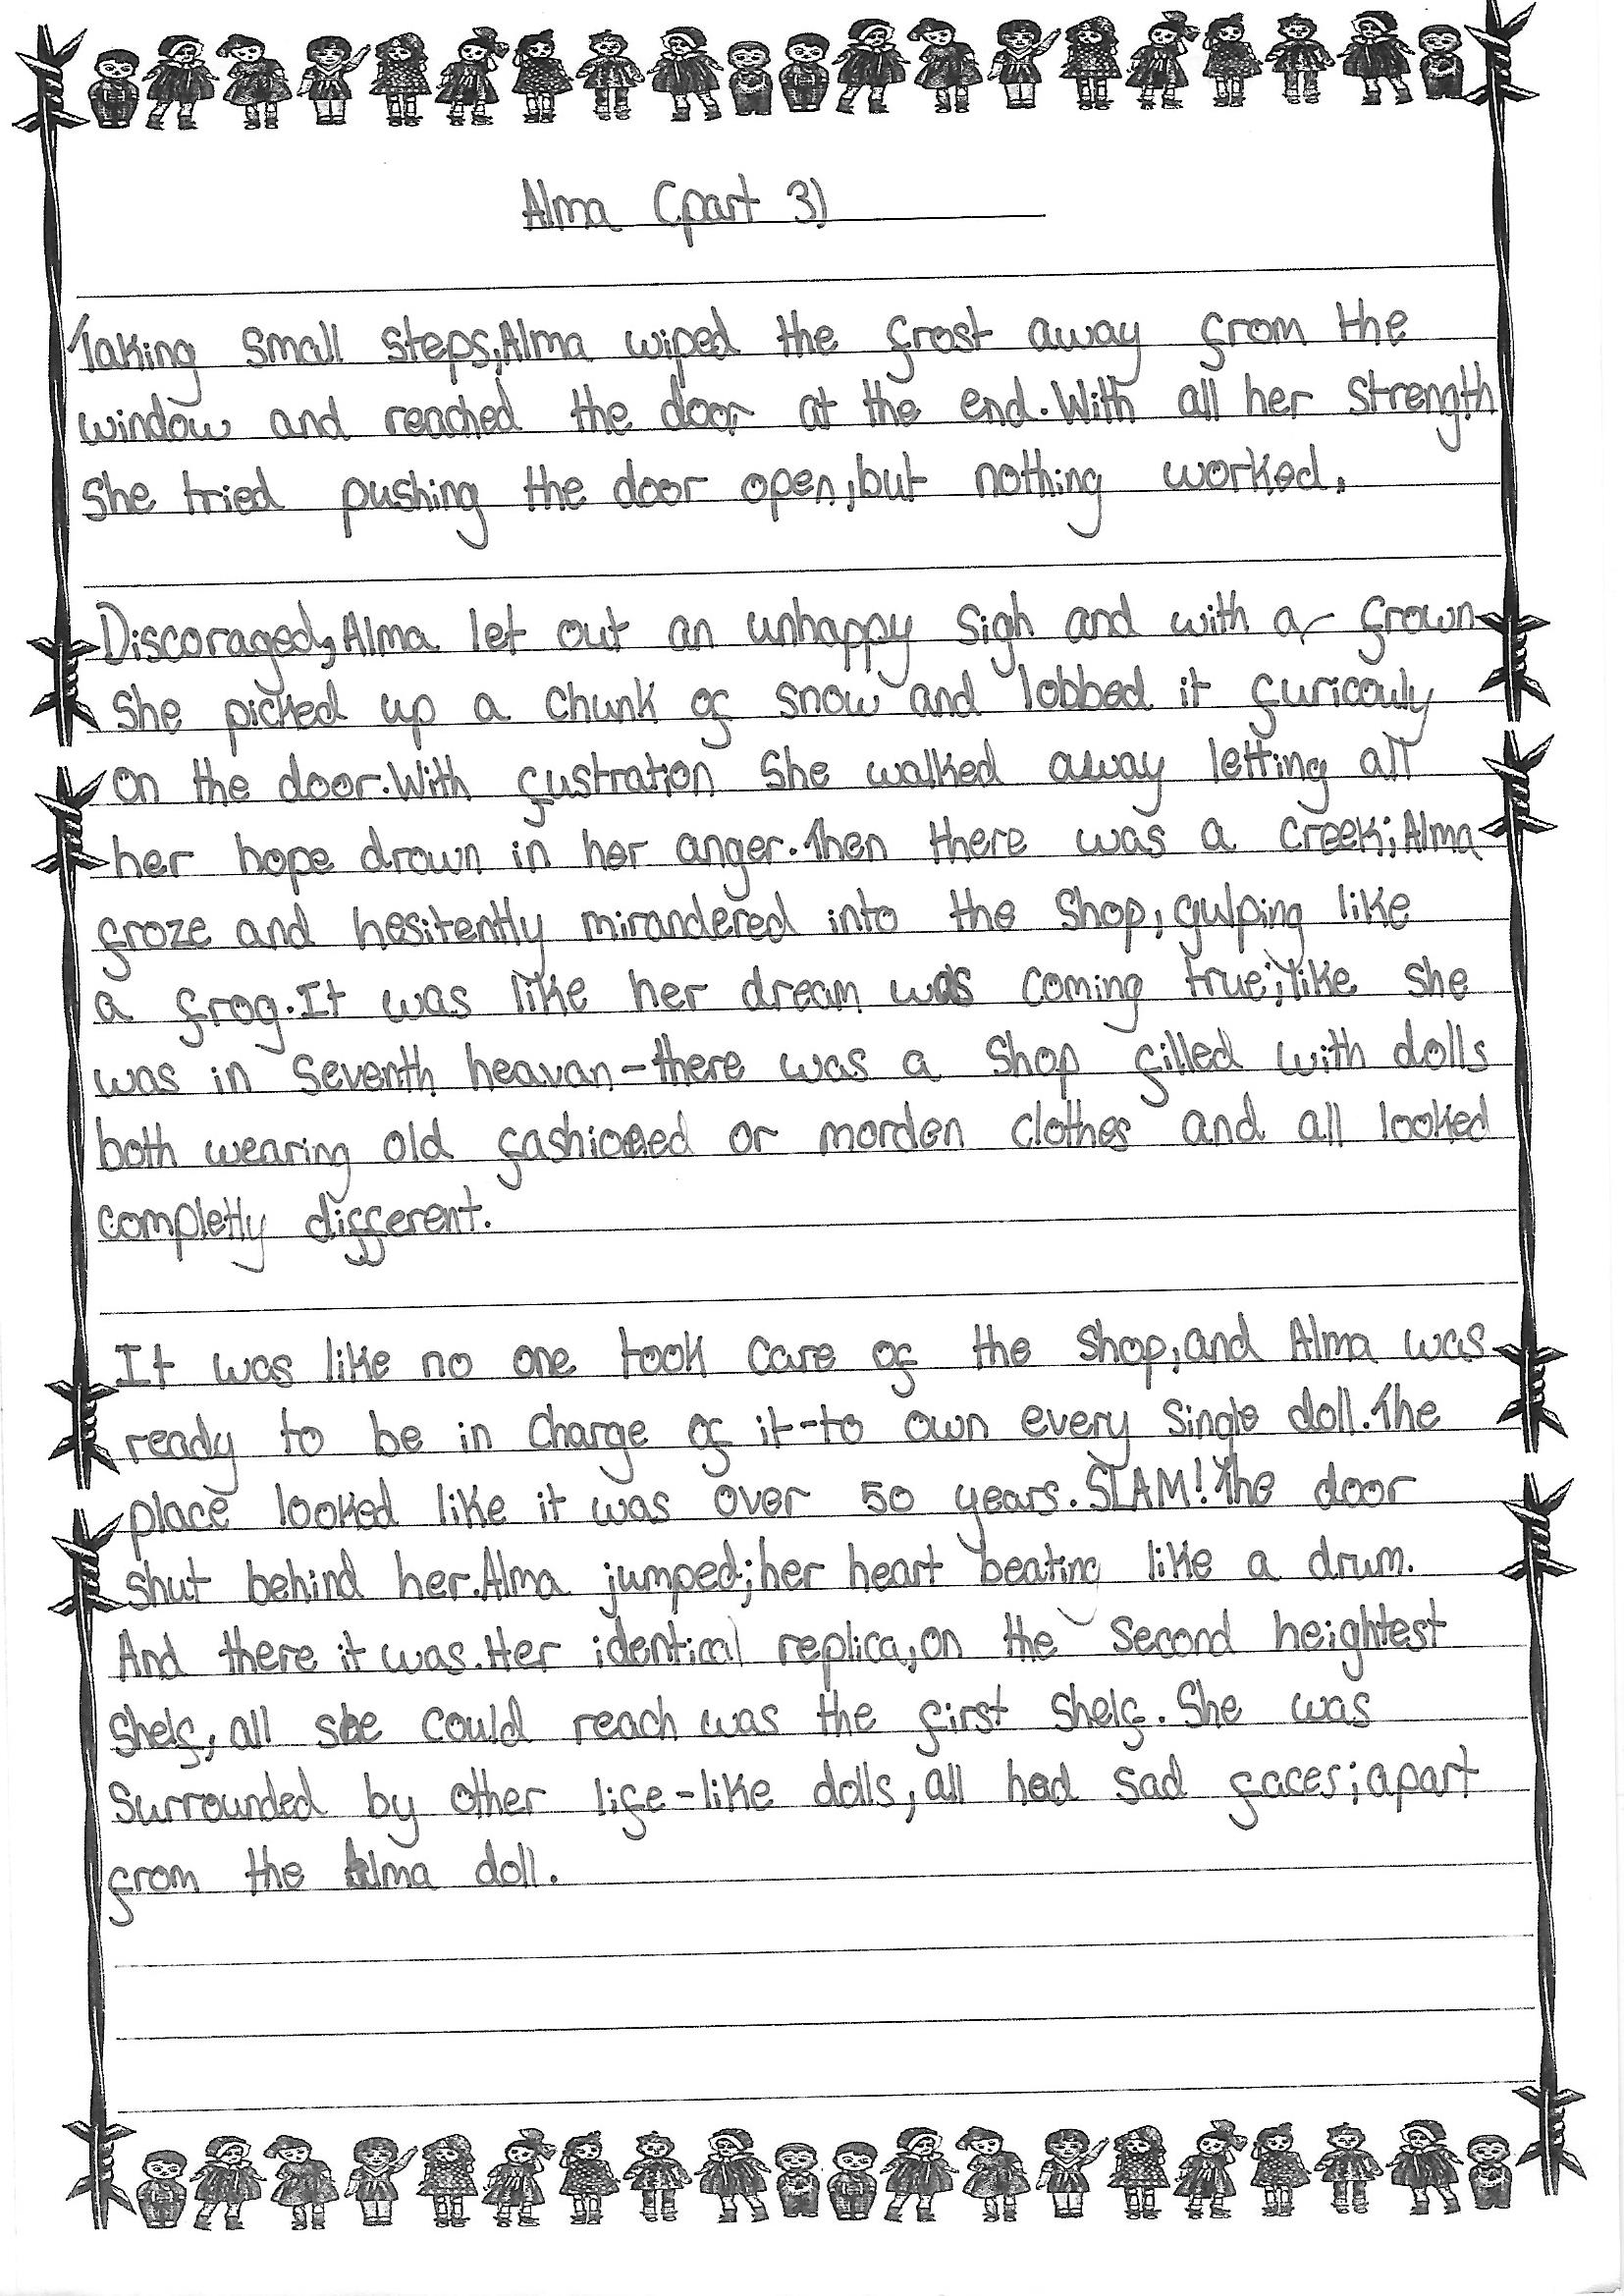 Alma (part 3)
Taking small steps, Alma wiped the frost away from the
window and reached the door at the end. With all her strength
she tried pushing the door open, but nothing worked.
Discoraged, Alma let out an unhappy sigh and with a frown
she picked up a chunk of snow and lobbed it furicouly
on the door. With fustration she walked away letting all
her hope drown in her anger. Then there was a creek; Alma
froze and hesitently mirandered into the shop, gulping like
a frog. It was like her dream was coming true; like she
was in seventh heavan - there was a shop filled with dolls
both wearing old fashioned or morden clothes and all looked
completly different.
It was like no one took care of the shop, and Alma was
ready to be in charge of it - to own every single doll. The
place looked like it was over 50 years. SLAM! The door
shut behind her. Alma jumped; her heart beating like a drum.
And there it was. Her identical replica, on the second heightest
shelf, all she could reach was the first shelf. She was
surrounded by other life-like dolls, all had sad faces; apart
from the Alma doll.